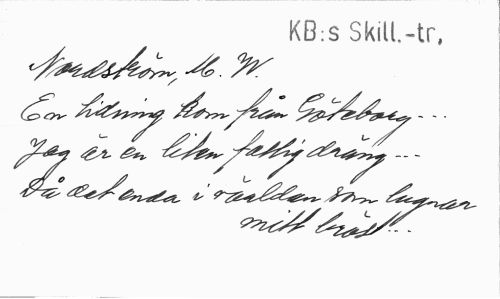 KB:s Skill.-tr,
Nordström, M. W.
En tidning kom från Göteborg---
Jag är en liten fattig dräng---
Då det enda i världen som lugnar
mitt bröst---